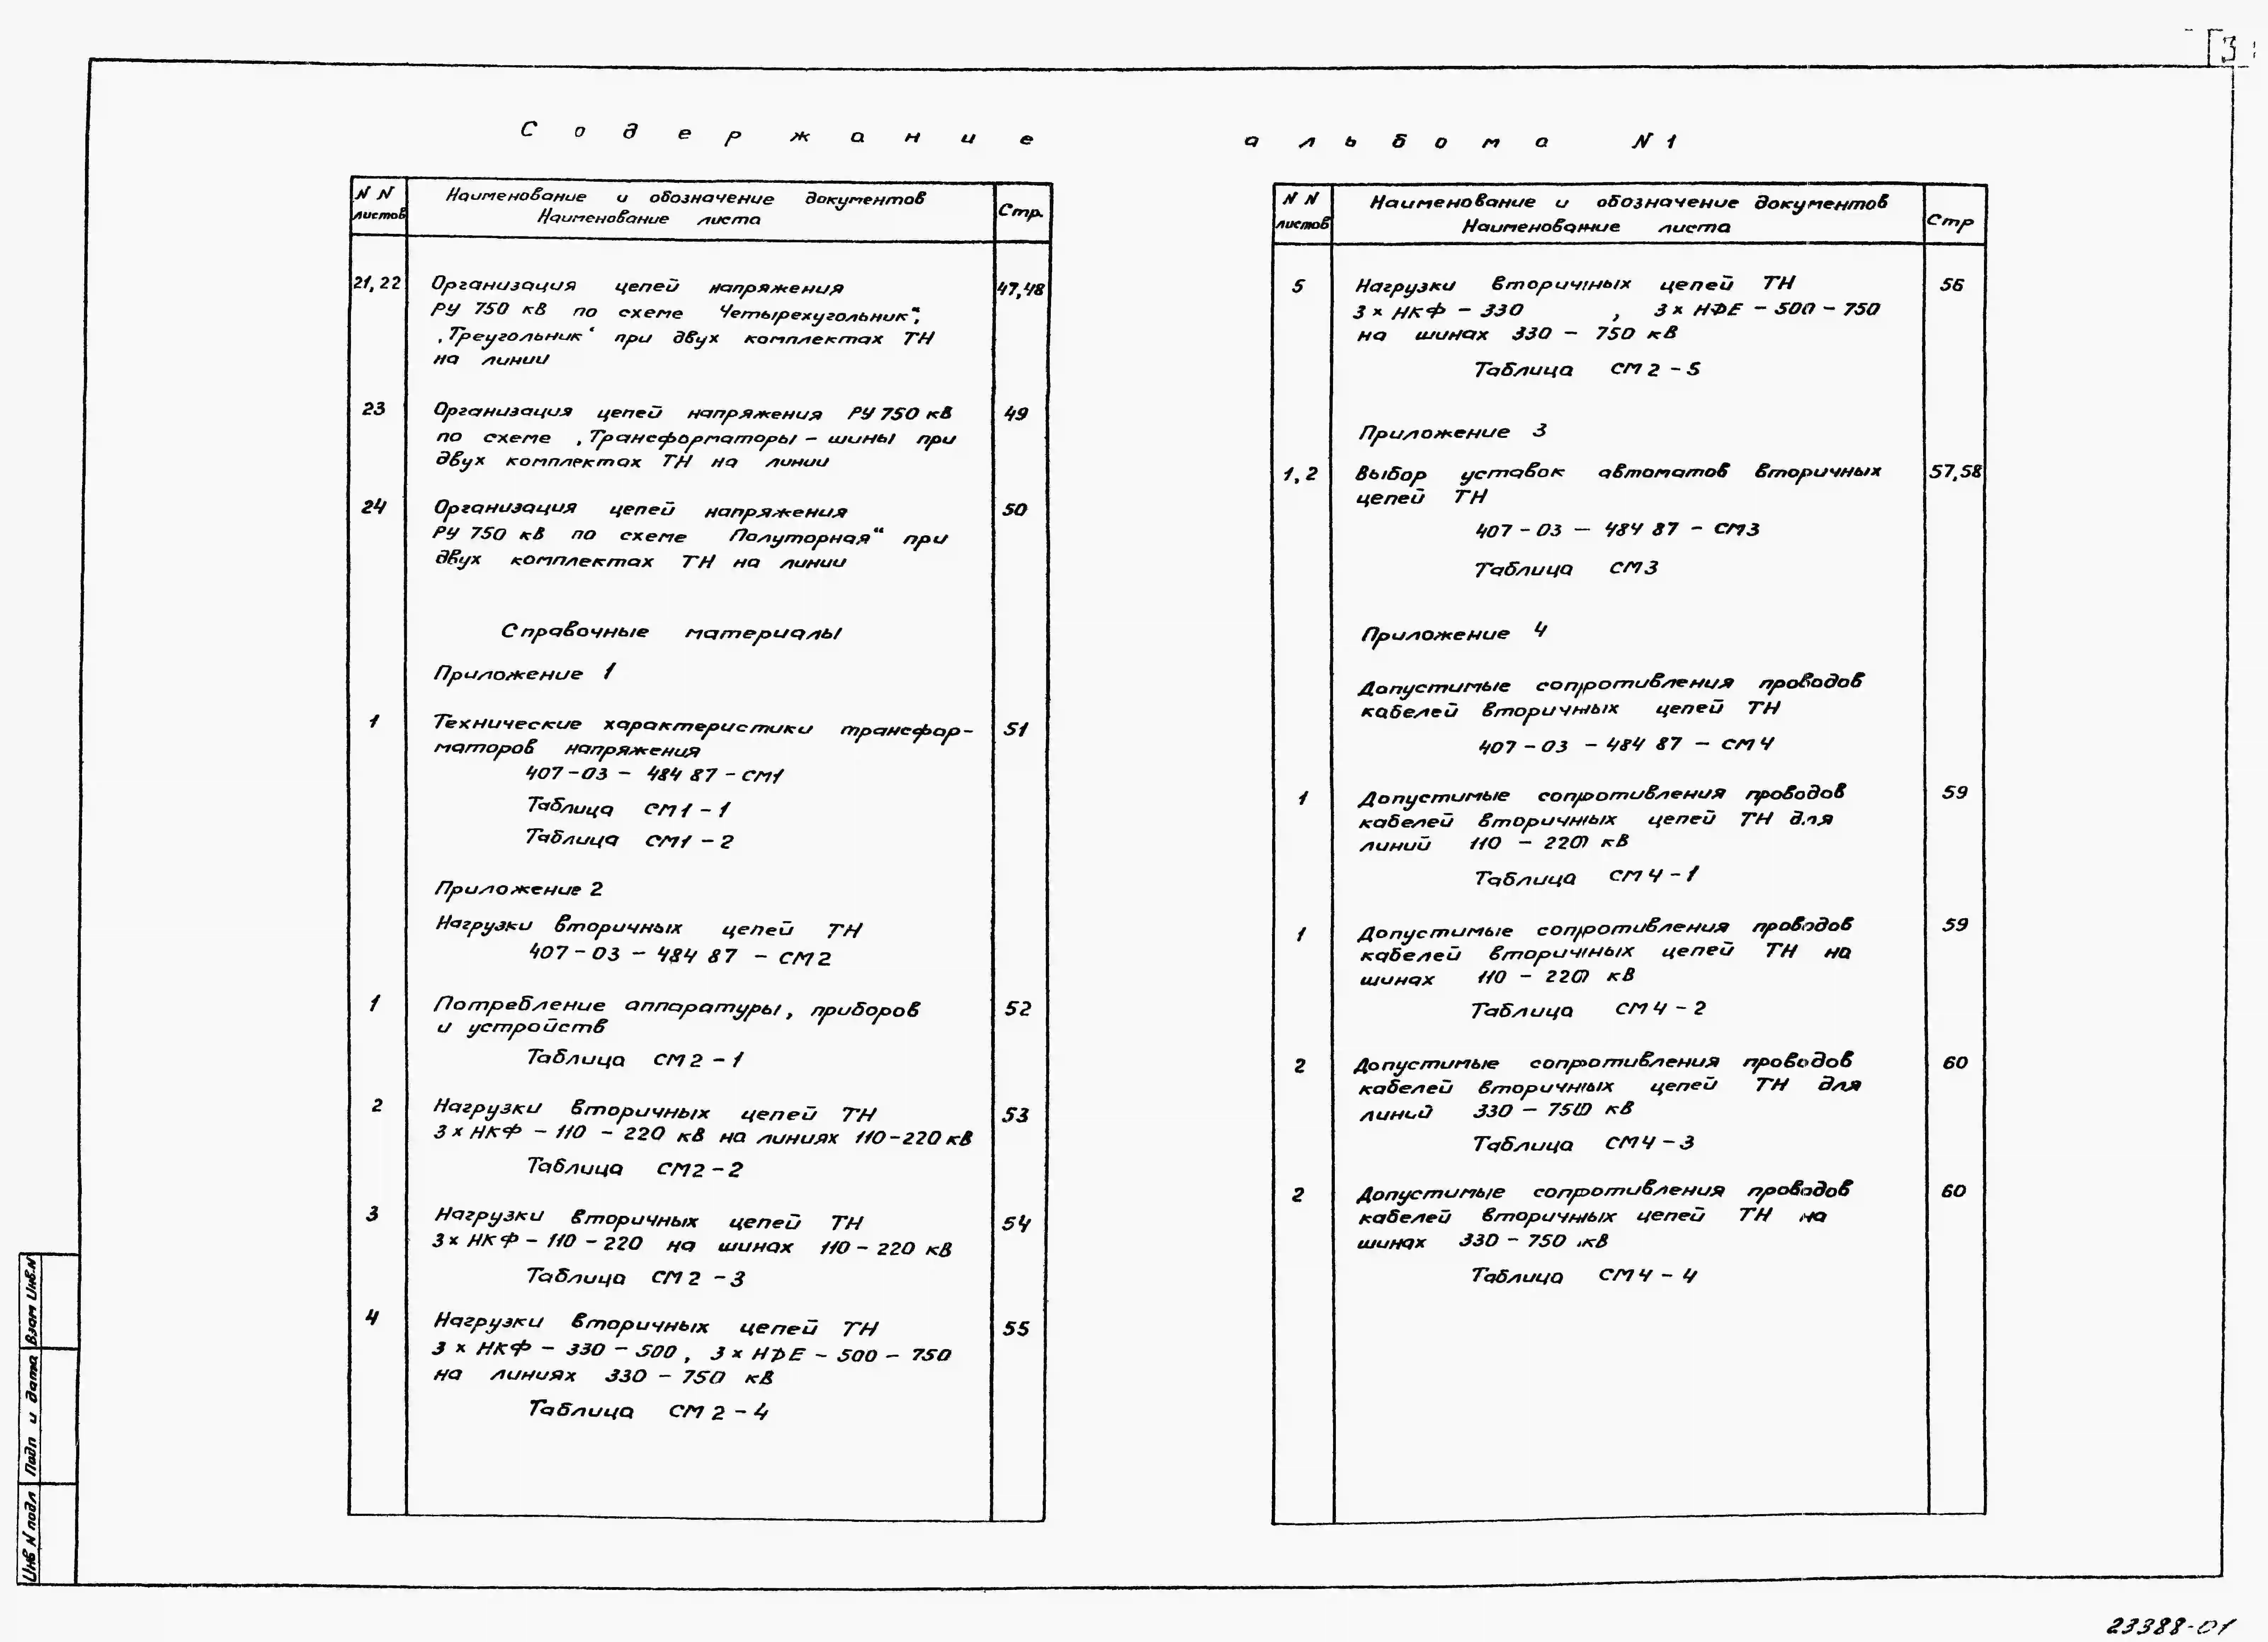 3
Содержание альбома N1
N N листов
Наименование и обозначение документов
Наименование листа
Стр.
21,22 Организация цепей напряжения 47,48
РУ 750 кВ по схеме Четырехугольник",
„Треугольник“ при двух комплектах ТН
на линии
23 Организация цепей напряжения РУ 750 кВ 49
по схеме „Трансформаторы – шины при
двух комплектах ТН на линии
24 Организация цепей напряжения 50
РУ 750 кВ по схеме Полуторная“ при
двух комплектах ТН на линии
Справочные материалы
Приложение 1
1 Технические характеристики трансфор- 51
маторов напряжения
407-03 - 484 87 - СМ1
Таблица СМ1 - 1
Таблица СМ1 - 2
Приложение 2
Нагрузки вторичных цепей ТН
407 - 03 - 484 87 - СМ2
1 Потребление аппаратуры, приборов 52
и устройств
Таблица СМ2 - 1
2 Нагрузки вторичных цепей ТН 53
3 х НКФ - 110 - 220 кВ на линиях 110-220 кВ
Таблица СМ2 - 2
3 Нагрузки вторичных цепей ТН 54
3 х НКФ - 110 - 220 на шинах 110 - 220 кВ
Таблица СМ2 - 3
4 Нагрузки вторичных цепей ТН 55
3 х НКФ - 330 - 500, 3 х НДЕ - 500 - 750
на линиях 330 - 750 кВ
Таблица СМ2 - 4
N N листов
Наименование и обозначение документов
Наименование листа
Стр
5 Нагрузки вторичных цепей ТН 56
3 х НКФ - 330 , 3 х НДЕ - 500 - 750
на шинах 330 - 750 кВ
Таблица СМ2 - 5
Приложение 3
1, 2 Выбор уставок автоматов вторичных 57,58
цепей ТН
407 - 03 - 484 87 - СМ3
Таблица СМ3
Приложение 4
Допустимые сопротивления проводов
кабелей вторичных цепей ТН
407 - 03 - 484 87 - СМ4
1 Допустимые сопротивления проводов 59
кабелей вторичных цепей ТН для
линий 110 - 220 кВ
Таблица СМ4 - 1
1 Допустимые сопротивления проводов 59
кабелей вторичных цепей ТН на
шинах 110 - 220 кВ
Таблица СМ4 - 2
2 Допустимые сопротивления проводов 60
кабелей вторичных цепей ТН для
линий 330 - 750 кВ
Таблица СМ4 - 3
2 Допустимые сопротивления проводов 60
кабелей вторичных цепей ТН на
шинах 330 - 750 кВ
Таблица СМ4 - 4
Инв N подл
Подп и дата
Взам Инв.N
23388-01